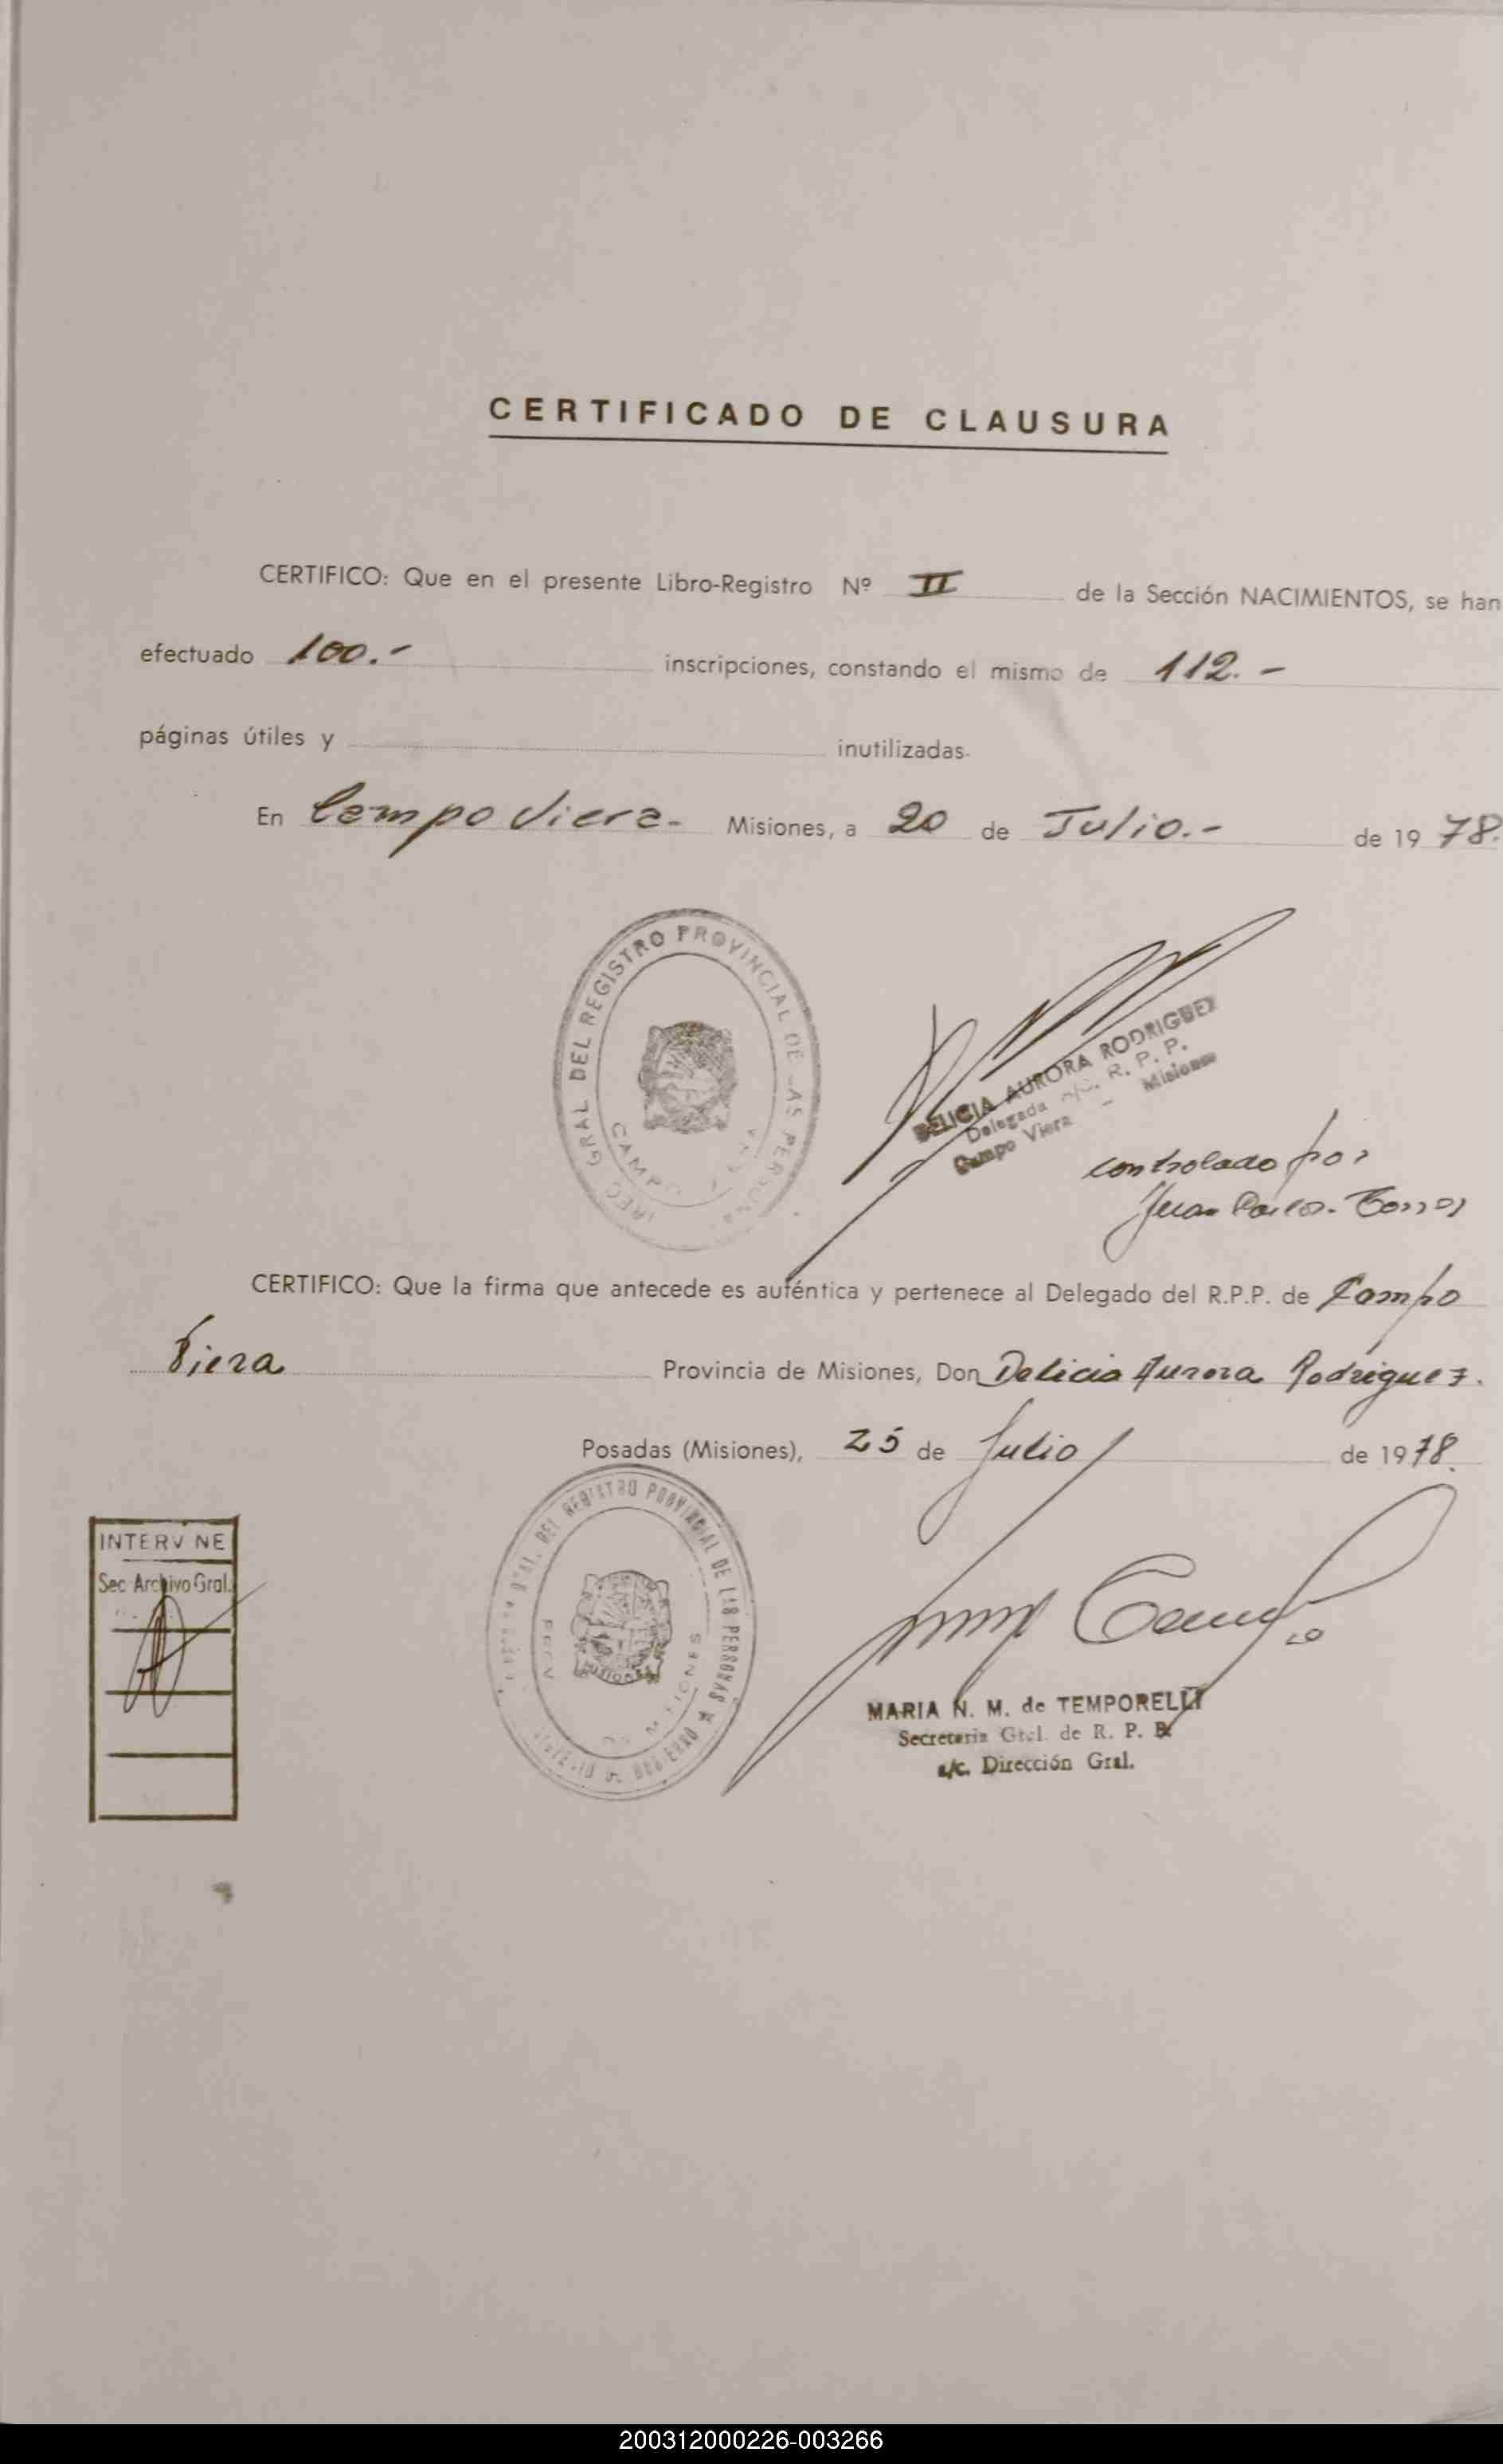 CERTIFICADO DE CLAUSURA
CERTIFICO: Que en el presente Libro-Registro Nº II de la Sección NACIMIENTOS, se han
efectuado 100.- inscripciones, constando el mismo de 112.-
páginas útiles y inutilizadas.
En Campo Viera.- Misiones, a 20 de Julio.- de 1978.
GRAL DEL REGISTRO PROVINCIAL DE LAS PERSONA
CAMPO
DELICIA AURORA RODRIGUEZ
Delegada R. P. P.
Campo Viera - Misiones
controlado por
Juan Carlos Torres
CERTIFICO: Que la firma que antecede es auténtica y pertenece al Delegado del R.P.P. de Campo
Viera Provincia de Misiones, Don Delicia Aurora Rodriguez.
Posadas (Misiones), 25 de Julio de 1978.
INTERV NE
Sec Archivo Gral.
DEL REGISTRO PROVINCIAL DE LAS PERSONAS
PROV. DE MISIONES
MISIONES
MARIA N. M. de TEMPORELLI
Secretaria Gral. de R. P. P.
a/c. Dirección Gral.
200312000226-003266